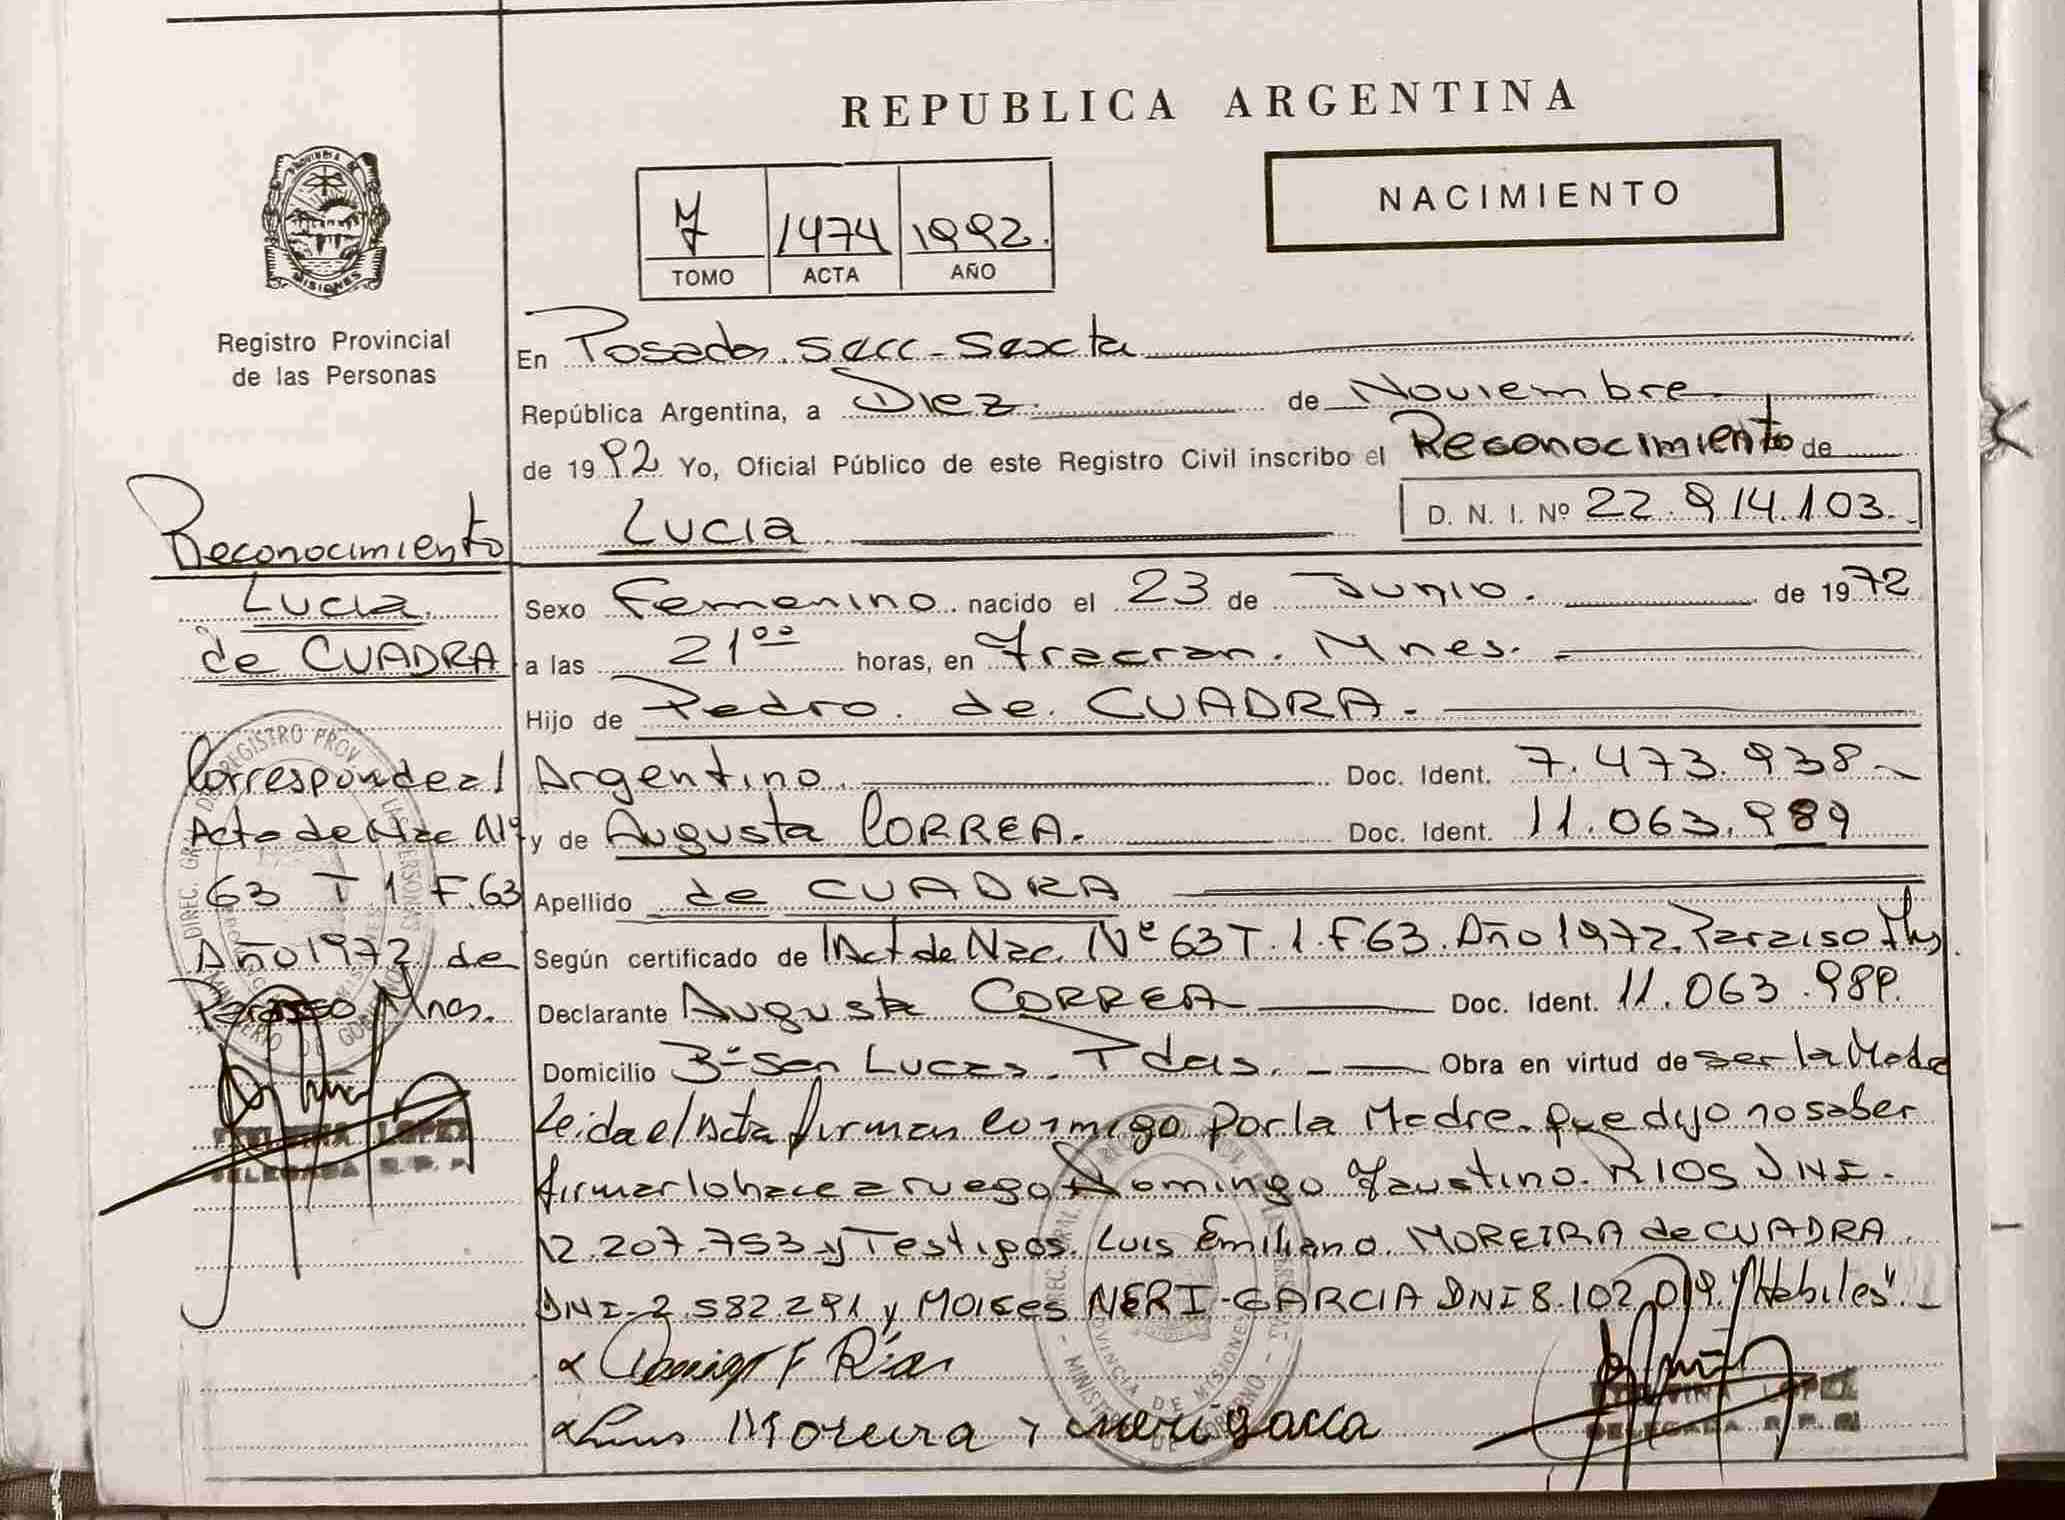 REPUBLICA ARGENTINA
NACIMIENTO
7 1474 1992.
TOMO ACTA AÑO
PROVINCIA DE MISIONES
Registro Provincial
de las Personas
En Posadas secc - Sexta
República Argentina, a Diez de Noviembre
de 1992 Yo, Oficial Público de este Registro Civil inscribo el Reconocimiento de
Lucia. D. N. I. Nº 22.914.103.
Sexo Femenino nacido el 23 de Junio. de 1972
a las 21⁰⁰ horas, en Fracran. Mnes.
Hijo de Pedro de CUADRA.
Argentino. Doc. Ident. 7.473.938.
y de Augusta CORREA. Doc. Ident. 11.063.989
Apellido de CUADRA
Según certificado de Act de Nac. Nº 63 T. 1. F 63. Año 1972. Paraiso
Declarante Augusta CORREA Doc. Ident. 11.063.989.
Domicilio Bº San Lucas. Pdas. Obra en virtud de ser la Madre
Leida el Acta firman conmigo por la Madre que dijo no saber
firmar lo hace a ruego Domingo Faustino RIOS DNI.
12.207.753 y Testigos. Luis Emiliano MOREIRA de CUADRA.
DNI-2.582.291 y Moises NERI-GARCIA DNI 8.102.019. "Habiles".
Reconocimiento
Lucia.
de CUADRA
Corresponde al
Acta de Nac Nº
63 T 1 F. 63
Año 1972 de
Paraiso Mnes.
LOPEZ
DELEGADA R. P. P.
Luis Moreira y neri garcia
LOPEZ
DELEGADA R. P. P.